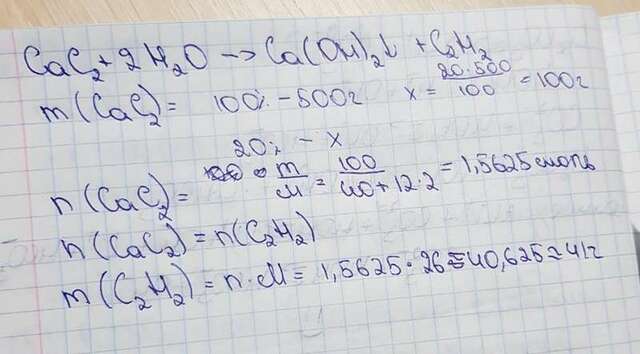 CaC₂ + 2H₂O → Ca(OH)₂↓ + C₂H₂
m(CaC₂) = 100% - 500г x = 20·500/100 = 100г
20% - x
n(CaC₂) = m/M = 100/40+12·2 = 1,5625 моль
n(CaC₂) = n(C₂H₂)
m(C₂H₂) = n·M = 1,5625·26 ≈ 40,625 ≈ 41г